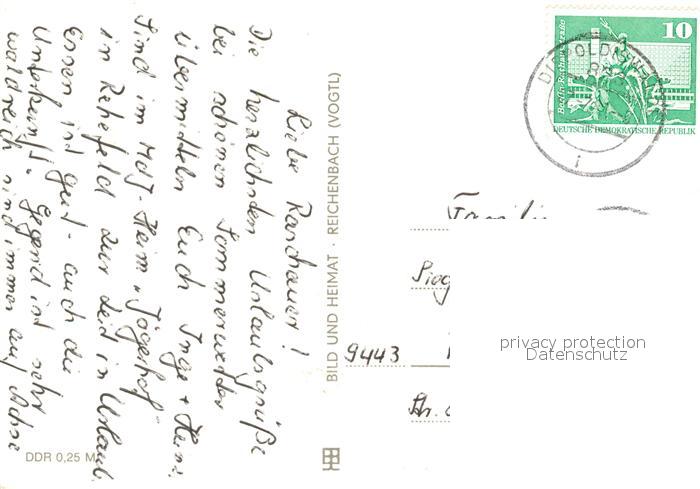 Liebe Raschauer!
Die herzlichsten Urlaubsgrüße
bei schönen Sommerwetter
übermitteln Euch Inge + Heinz.
Sind im MdJ-Heim "Jägerhof"
in Rehefeld zur Zeit in Urlaub.
Essen ist gut - auch die
Unterkunft. Gegend ist sehr
waldreich sind immer auf Achse
DDR 0,25 M
BILD UND HEIMAT · REICHENBACH (VOGTL)
10
Berlin-Rathausstraße
DEUTSCHE DEMOKRATISCHE REPUBLIK
Familie
9443
Str.
privacy protection
Datenschutz